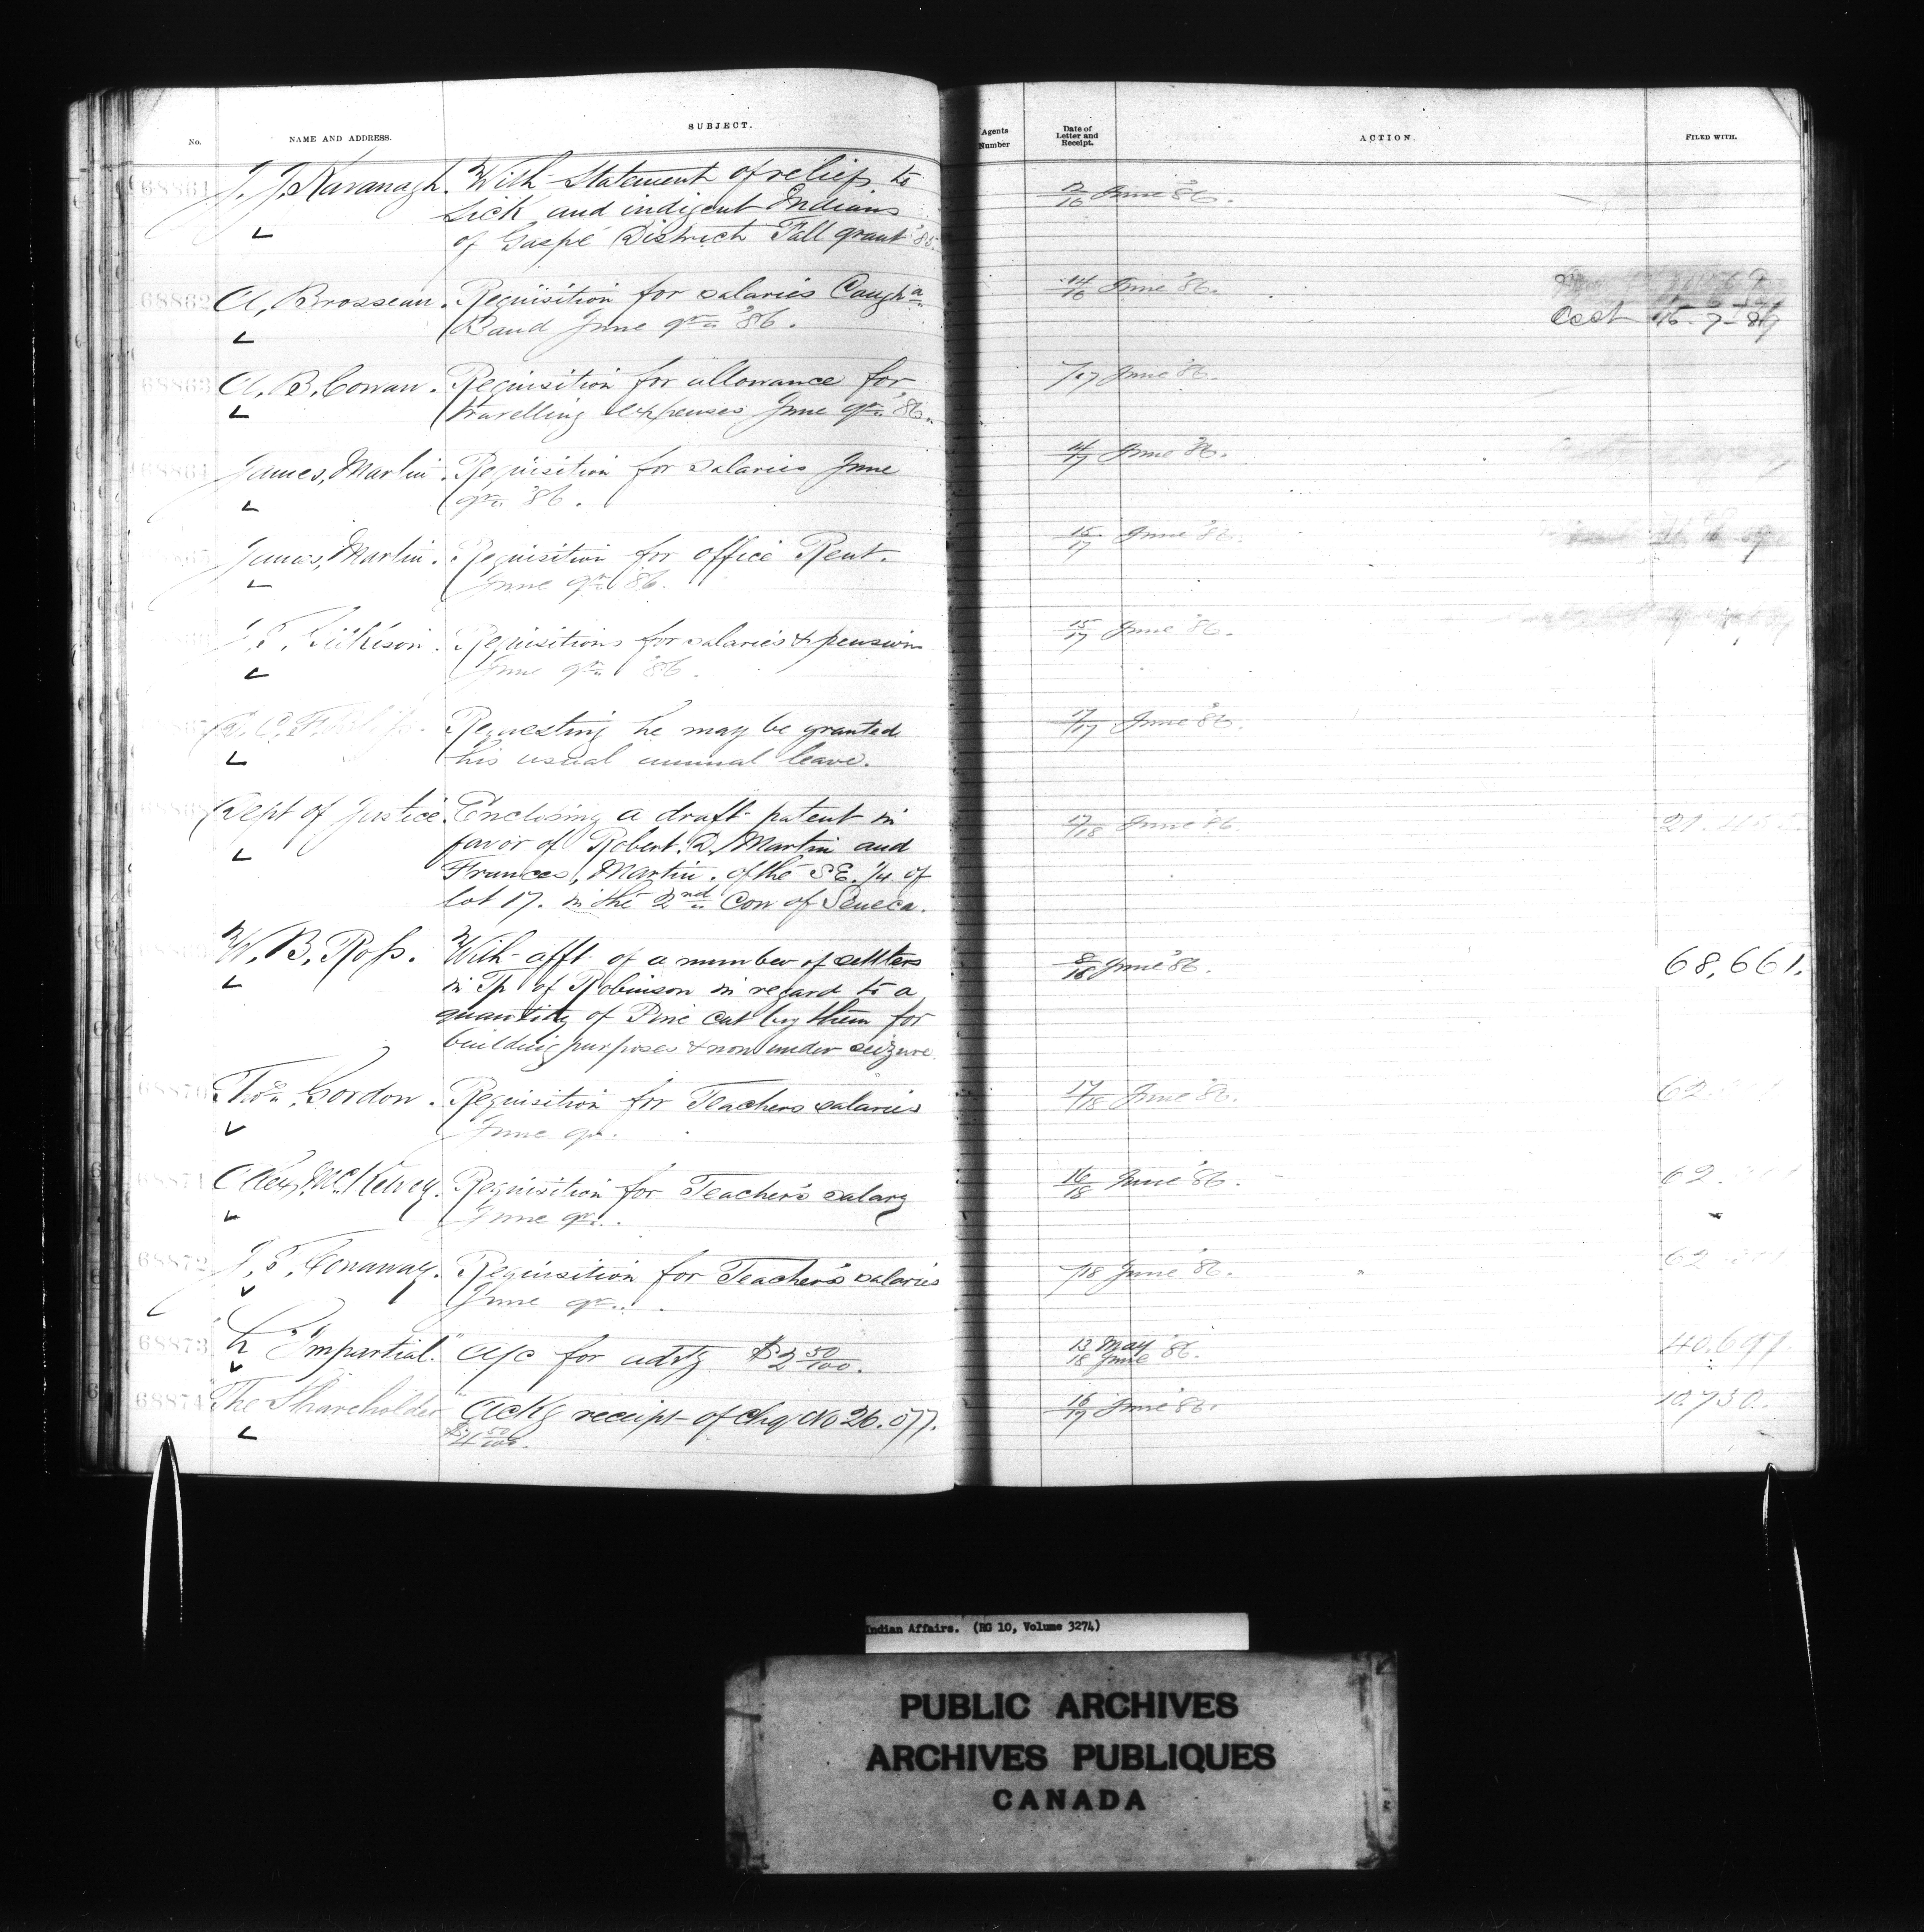 No. NAME AND ADDRESS. SUBJECT. Agents Number Date of Letter and Receipt. ACTION. FILED WITH.
68861 J. J. Kavanagh. With Statement of relief to 12/16 June '86.
sick and indigent Indians
of Gaspé District Fall grant '85.
68862 A. Brosseau. Requisition for salaries Caugh'a 14/16 June '86.
Band June qr. '86. 15-7-89
68863 A. B. Cowan. Requisition for allowance for /17 June '86.
travelling expenses June qr. '86.
68864 James, Martin. Requisition for salaries June 14/17 June '86.
qr. '86.
James, Martin. Requisition for office Rent. 15/17 June '86.
June qr. '86.
J. T. Gilkison. Requisitions for salaries & pension 15/17 June '86.
June qr. '86.
Requesting he may be granted 17/17 June '86.
his usual annual leave.
Dept of Justice. Enclosing a draft patent in 17/18 June '86.
favor of Robert. D. Martin and
Frances, Martin. of the SE. 1/4 of
lot 17. in the 2nd Con of Seneca.
W. B. Ross. With afft. of a number of settlers 8/18 June '86. 68,661.
in Tp of Robinson in regard to a
quantity of Pine cut by them for
building purposes & now under seizure.
68870 Thos. Gordon. Requisition for Teachers salaries 17/18 June '86. 62
June qr.
68871 Alex, McKelvey. Requisition for Teacher's salary 16/18 June '86. 62.
June qr.
68872 J. T. Conaway. Requisition for Teacher's salaries /18 June '86. 62
June qr.
68873 "L' Impartial." A/c for advtg $2 50/100. 13 May 18 June '86. 40,697
68874 "The Shareholder" Ackg receipt of chq No 26.077. 16/17 June '86. 10.730.
$4 50/100.
Indian Affairs. (RG 10, Volume 3274)
PUBLIC ARCHIVES
ARCHIVES PUBLIQUES
CANADA